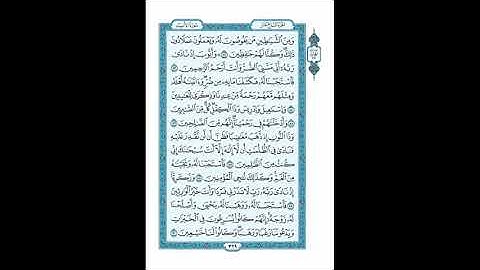 الجزء السابع عشر
سورة الأنبياء
وَمِنَ ٱلشَّيَٰطِينِ مَن يَغُوصُونَ لَهُۥ وَيَعْمَلُونَ عَمَلًا دُونَ
ذَٰلِكَ وَكُنَّا لَهُمْ حَٰفِظِينَ ٨٢ وَأَيُّوبَ إِذْ نَادَىٰ
رَبَّهُۥٓ أَنِّي مَسَّنِيَ ٱلضُّرُّ وَأَنتَ أَرْحَمُ ٱلرَّٰحِمِينَ ٨٣
فَٱسْتَجَبْنَا لَهُۥ فَكَشَفْنَا مَا بِهِۦ مِن ضُرٍّ وَءَاتَيْنَٰهُ أَهْلَهُۥ
وَمِثْلَهُم مَّعَهُمْ رَحْمَةً مِّنْ عِندِنَا وَذِكْرَىٰ لِلْعَٰبِدِينَ
٨٤ وَإِسْمَٰعِيلَ وَإِدْرِيسَ وَذَا ٱلْكِفْلِ كُلٌّ مِّنَ ٱلصَّٰبِرِينَ
٨٥ وَأَدْخَلْنَٰهُمْ فِي رَحْمَتِنَآ إِنَّهُم مِّنَ ٱلصَّٰلِحِينَ ٨٦
وَذَا ٱلنُّونِ إِذ ذَّهَبَ مُغَٰضِبًا فَظَنَّ أَن لَّن نَّقْدِرَ عَلَيْهِ
فَنَادَىٰ فِي ٱلظُّلُمَٰتِ أَن لَّآ إِلَٰهَ إِلَّآ أَنتَ سُبْحَٰنَكَ إِنِّي
كُنتُ مِنَ ٱلظَّٰلِمِينَ ٨٧ فَٱسْتَجَبْنَا لَهُۥ وَنَجَّيْنَٰهُ
مِنَ ٱلْغَمِّ وَكَذَٰلِكَ نُـۨجِي ٱلْمُؤْمِنِينَ ٨٨ وَزَكَرِيَّآ
إِذْ نَادَىٰ رَبَّهُۥ رَبِّ لَا تَذَرْنِي فَرْدًا وَأَنتَ خَيْرُ ٱلْوَٰرِثِينَ
٨٩ فَٱسْتَجَبْنَا لَهُۥ وَوَهَبْنَا لَهُۥ يَحْيَىٰ وَأَصْلَحْنَا
لَهُۥ زَوْجَهُۥٓ إِنَّهُمْ كَانُوا۟ يُسَٰرِعُونَ فِي ٱلْخَيْرَٰتِ
وَيَدْعُونَنَا رَغَبًا وَرَهَبًا وَكَانُوا۟ لَنَا خَٰشِعِينَ ٩٠
٣٢٩